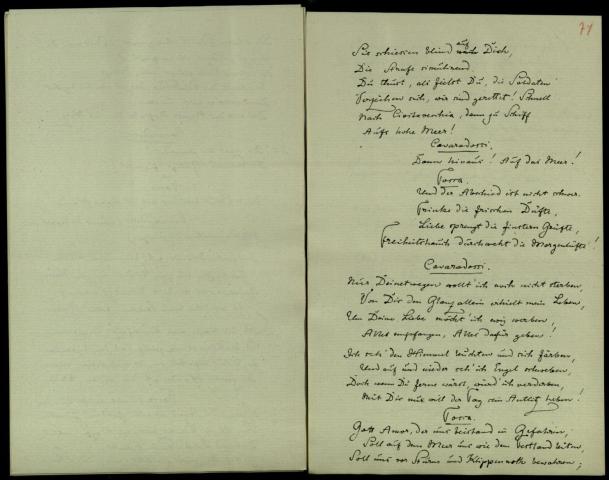 71
Sie schiessen blind auf Dich,
Die Strafe simulirend.
Du thust, als fielst Du, die Soldaten
Verziehen sich, wir sind gerettet! Schnell
Nach Civitavecchia, dann zu Schiff
Aufs hohe Meer!
Cavaradossi.
Dann hinaus! Auf das Meer!
Tosca.
Und der Abschied ist nicht schwer.
Trinke die frischen Düfte,
Liebe sprengt die finstern Grüfte,
Freiheitshauch durchweht die Morgenlüfte!
Cavaradossi.
Nur Deinetwegen wollt' ich noch nicht sterben,
Von Dir den Glanz allein erhielt mein Leben,
Um Deine Liebe möcht' ich ewig werben,
Alles empfangen, Alles dafür geben!
Ich seh' den Himmel leuchten und sich färben,
Und auf und nieder seh' ich Engel schweben,
Doch wenn Du ferne wärst, würd' ich verderben,
Mit Dir nur will der Tag sein Antlitz heben!
Tosca.
Gott Amor, der uns beistand in Gefahren,
Soll auf dem Meer uns wie dem Festland leiten,
Soll uns vor Sturm und Klippennoth bewahren;